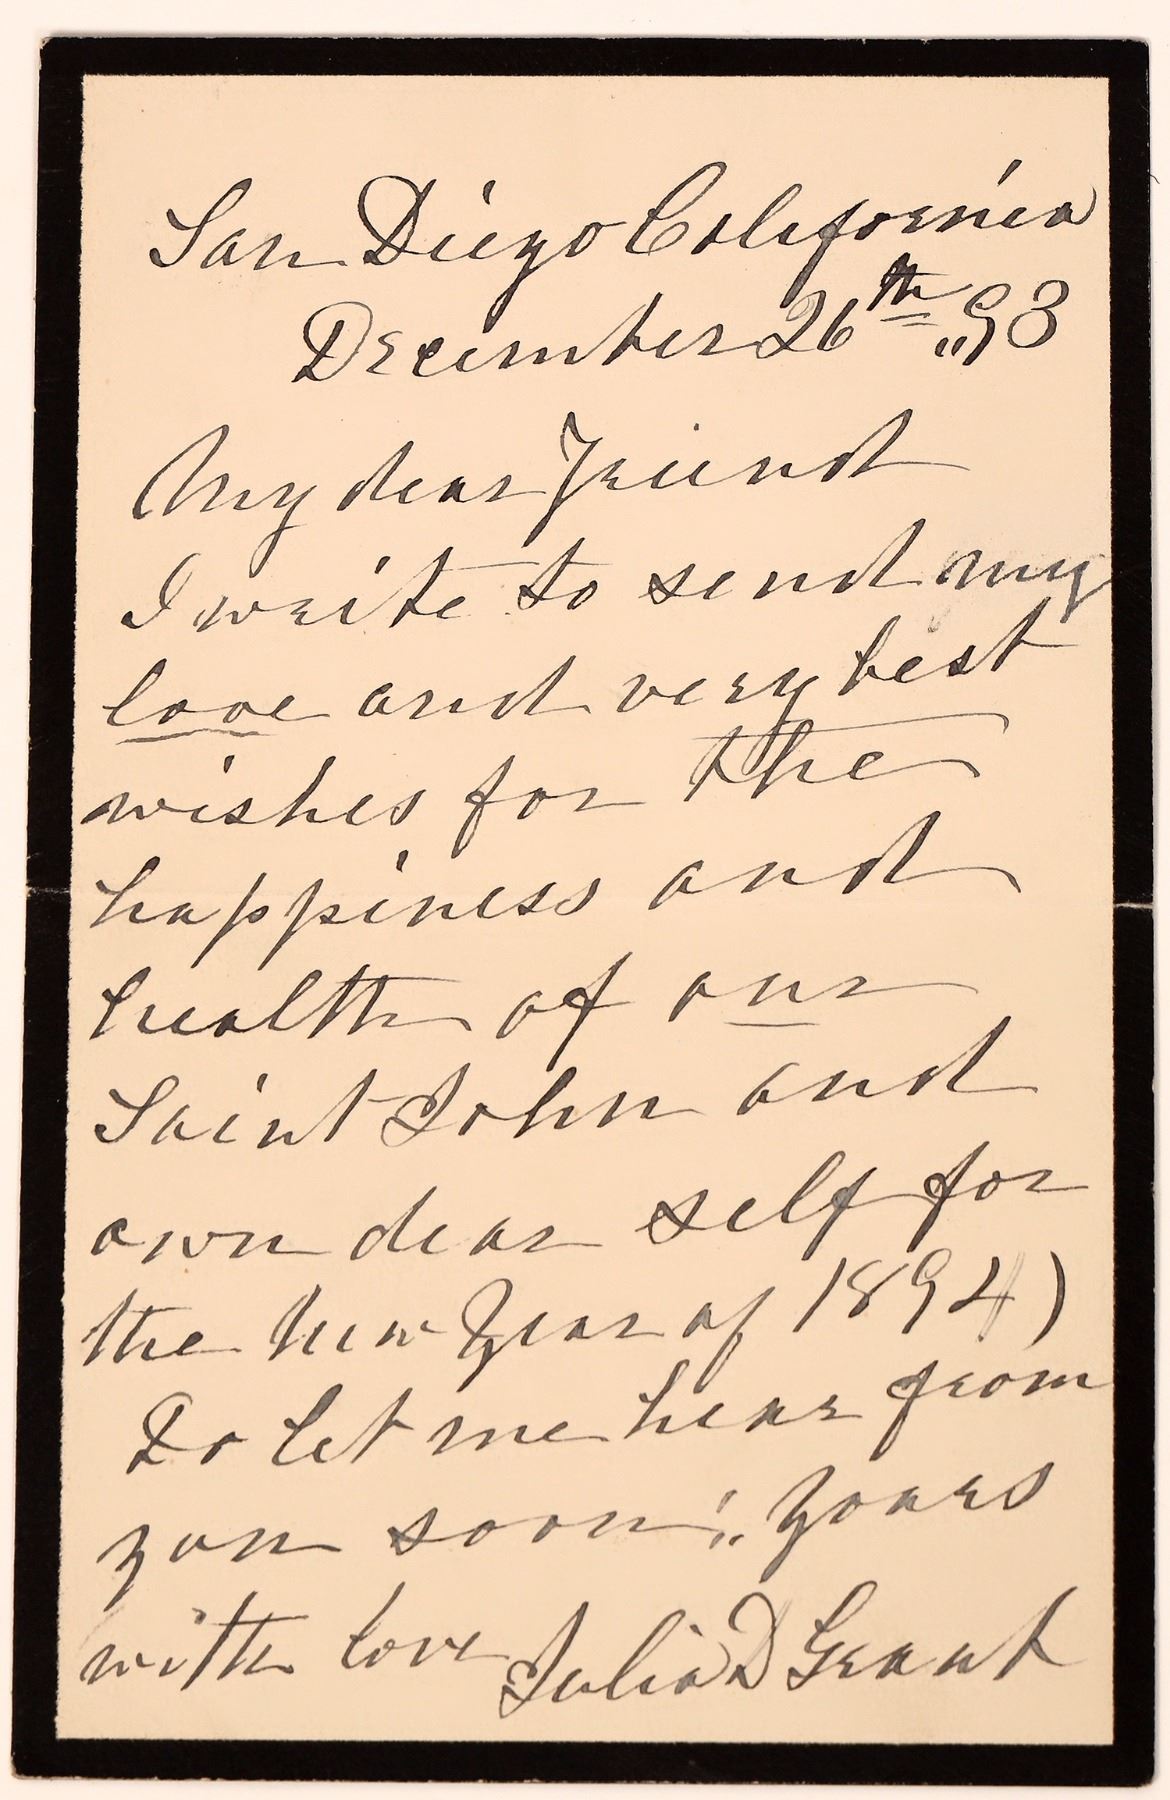 San Diego California
December 26th "93
My dear Friend
I write to send my
love and very best
wishes for the
happiness and
health of our
Saint John and
own dear self for
the New Year of 1894)
Do let me hear from
you soon," Yours
with love Julia D Grant